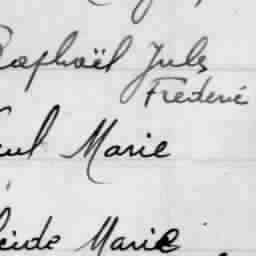 Raphaël Jules
Frederic
Marie
Marie